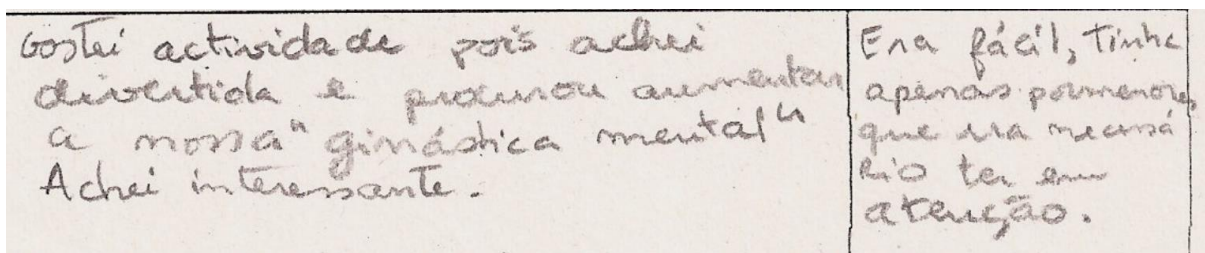 Gostei actividade pois achei
divertida e procurou aumentar
a nossa "ginástica mental"
Achei interessante.
Era fácil, Tinha
apenas pormenores
que era necessá
rio ter em
atenção.